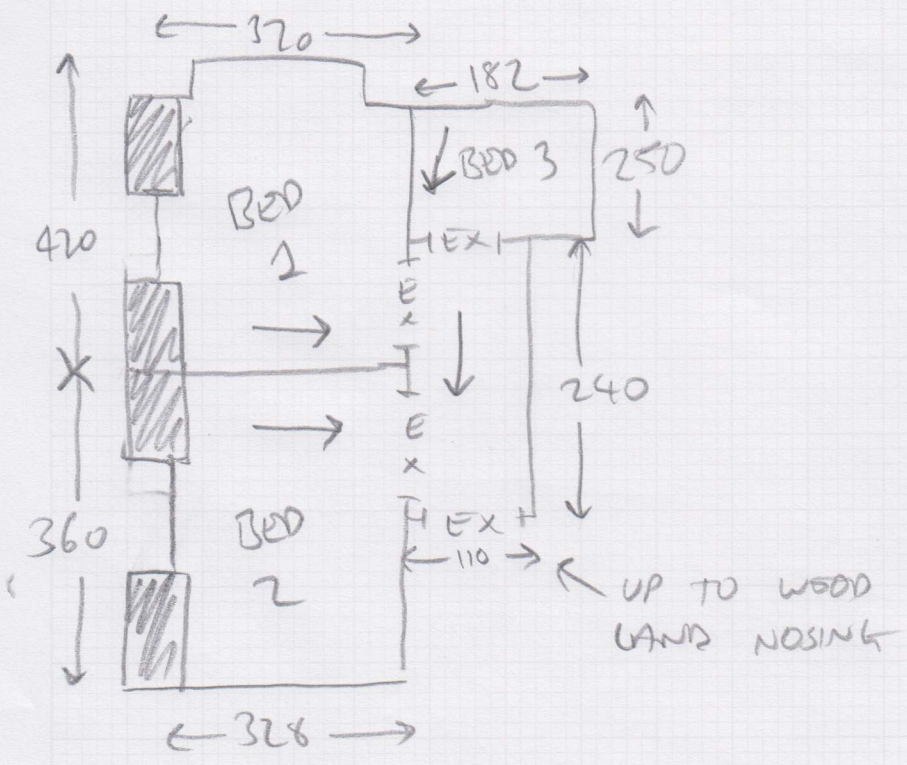 320
182
BED 3
250
BED
1
420
EX
E
X
240
E
X
360
BED
2
EX
110
UP TO WOOD
LAND NOSING
328